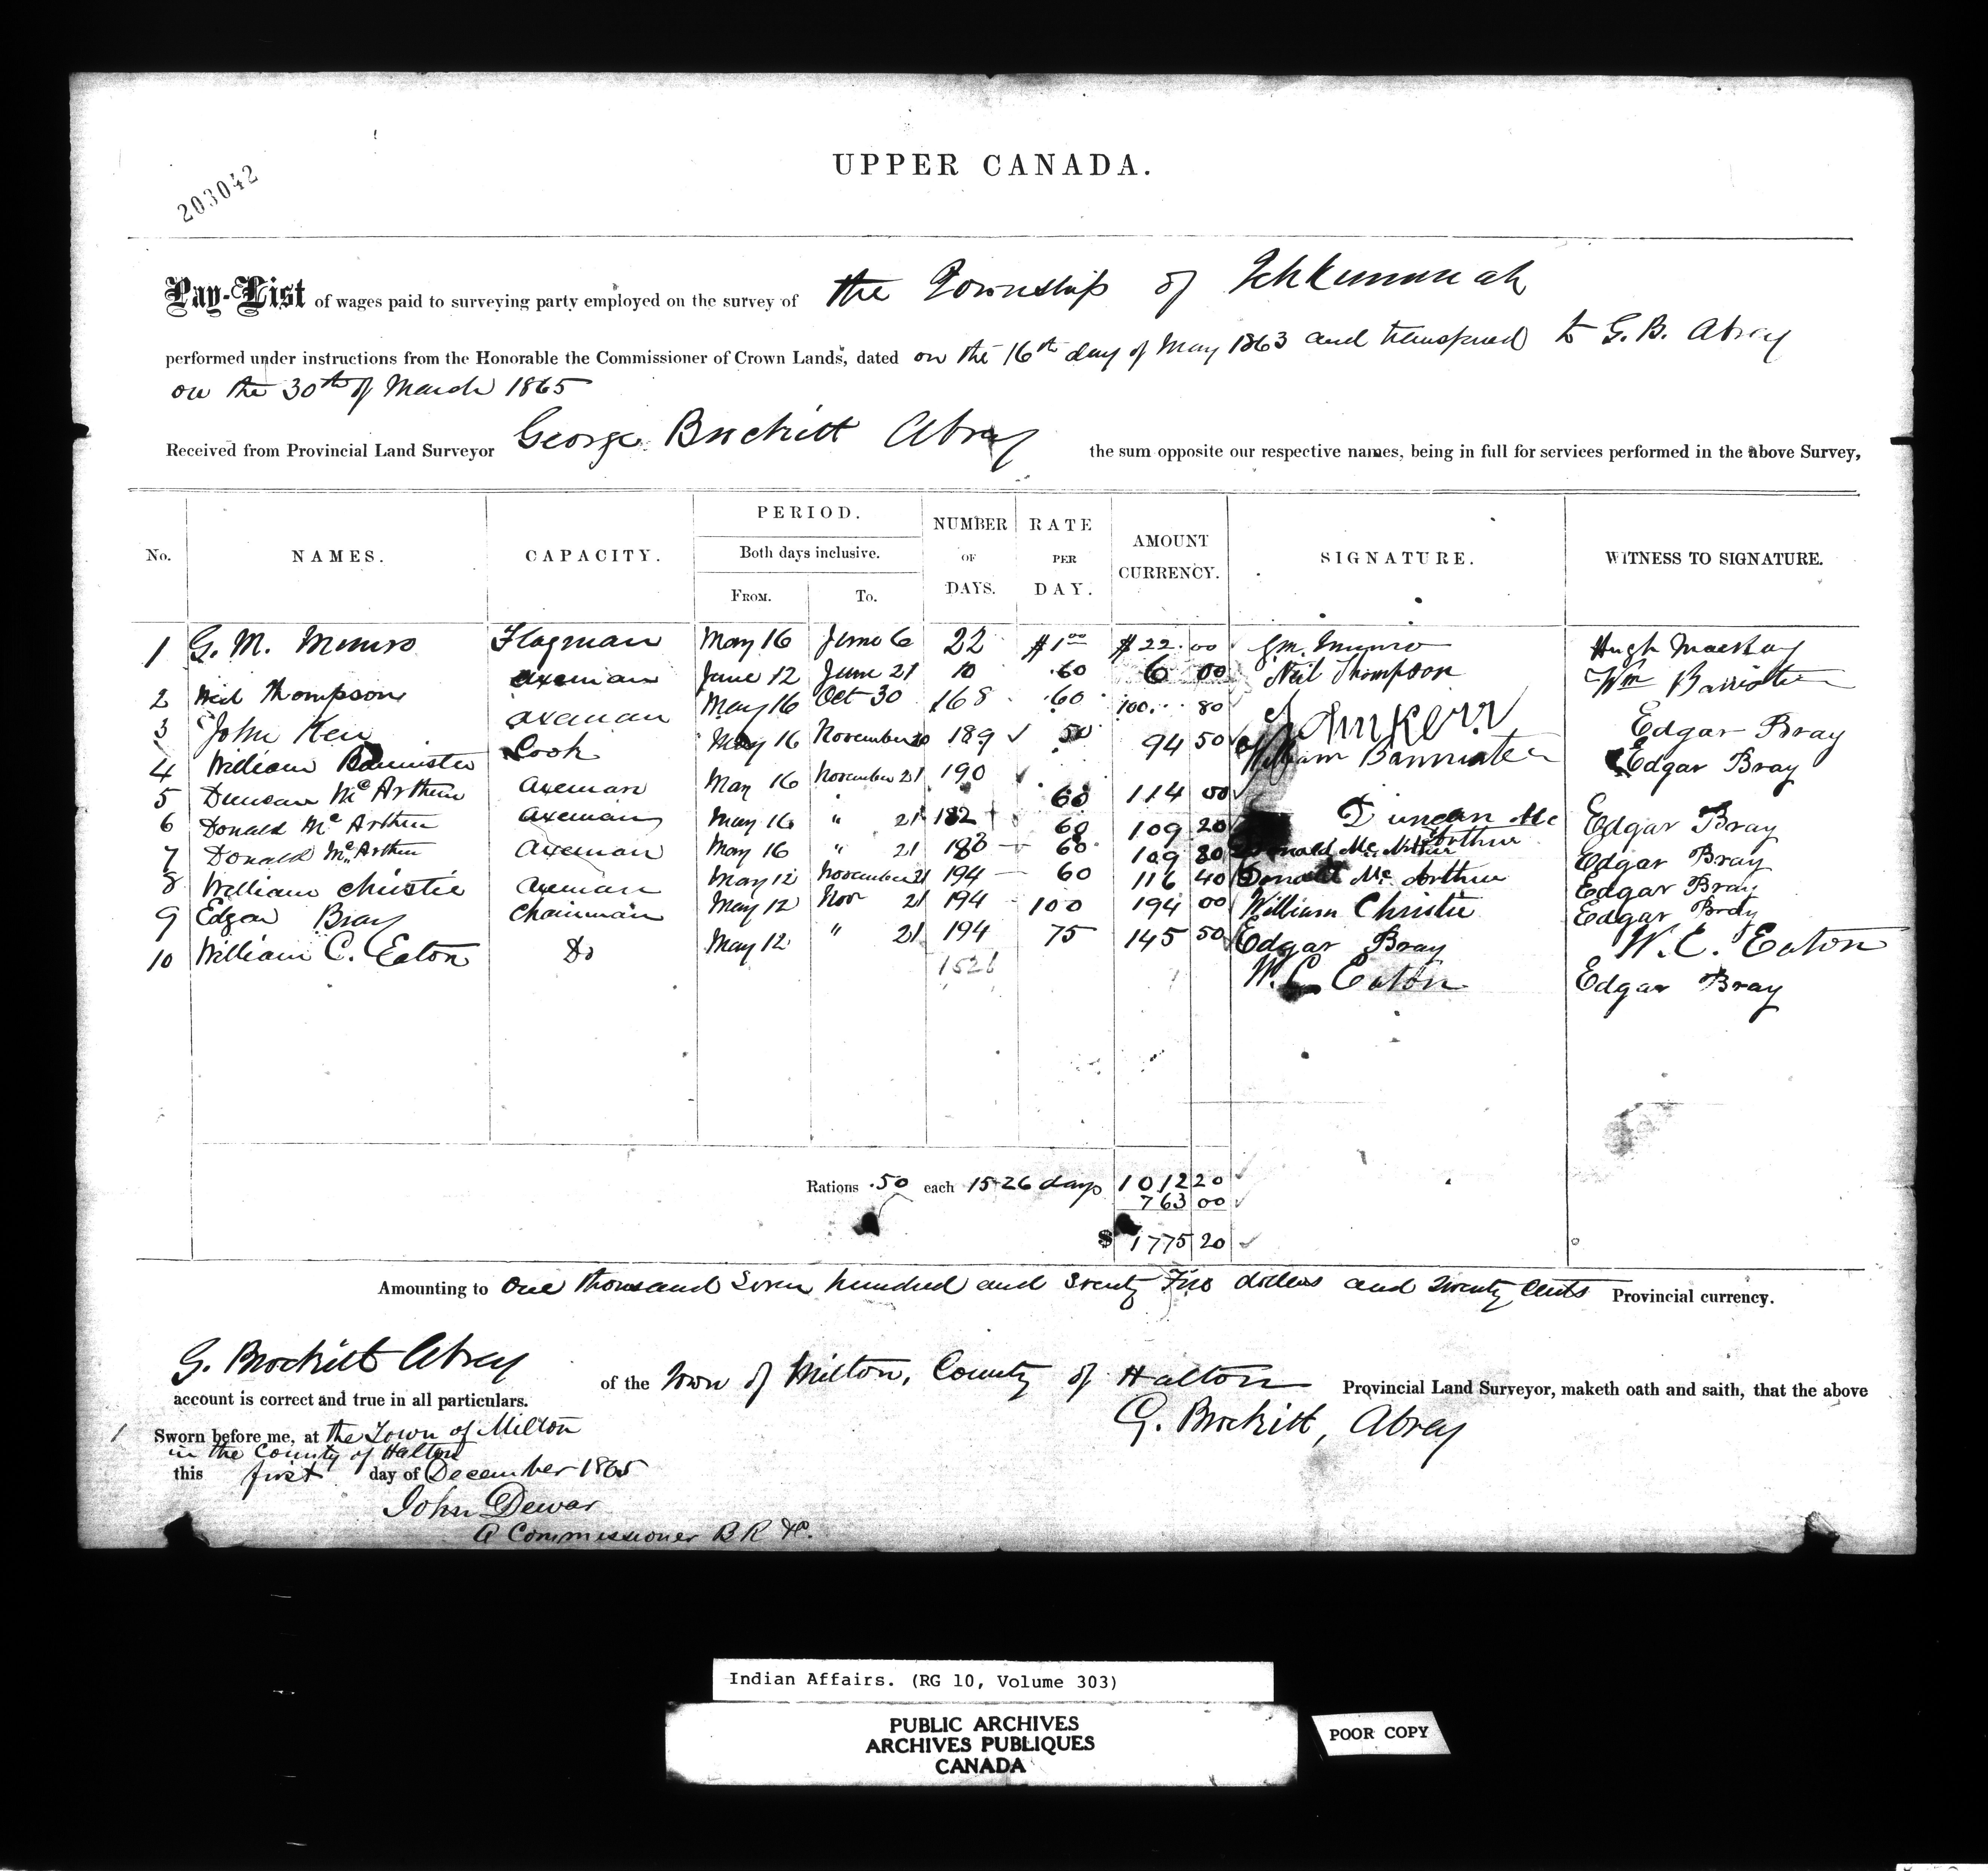 203042
UPPER CANADA.
Pay-List of wages paid to surveying party employed on the survey of the Township of Tehkummah
performed under instructions from the Honorable the Commissioner of Crown Lands, dated on the 16th day of May 1863 and transferred to G. B. Abrey
on the 30th of March 1865
Received from Provincial Land Surveyor George Brockitt Abrey the sum opposite our respective names, being in full for services performed in the above Survey,
No. NAMES. CAPACITY. PERIOD. Both days inclusive. FROM. TO. NUMBER OF DAYS. RATE PER DAY. AMOUNT CURRENCY. SIGNATURE. WITNESS TO SIGNATURE.
1 G. M. Munro Flagman May 16 June 6 22 $1 00 $22.00 G. M. Munro Hugh Mackay
2 Neil Thompson axeman June 12 June 21 10 .60 6 00 Neil Thompson Wm Bannister
3 John Kerr axeman May 16 Oct 30 168 .60 100.. 80 John Kerr Edgar Bray
4 William Bannister Cook May 16 November 20 189 ✓ 50 94 50 ✓ William Bannister Edgar Bray
5 Duncan McArthur axeman May 16 November 21 190 ✓ 60 114 00 ✓ Duncan Mc Arthur Edgar Bray
6 Donald McArthur axeman May 16 " 21 182 60 109 20 Donald Mc Arthur Edgar Bray
7 Donald McArthur axeman May 16 " 21 183 60 109 80 Donald Mc Arthur Edgar Bray
8 William Christie axeman May 12 November 21 194 60 116 40 William Christie Edgar Bray
9 Edgar Bray Chainman May 12 Nov 21 194 100 194 00 Edgar Bray W. C. Eaton
10 William C. Eaton Do May 12 " 21 194 75 145 50 W. C. Eaton Edgar Bray
1526
Rations .50 each 1526 days 1012 20 ✓
763 00 ✓
$ 1775 20 ✓
Amounting to One thousand Seven hundred and Seventy Five dollars and Twenty Cents Provincial currency.
G. Brockitt Abrey of the Town of Milton, County of Halton Provincial Land Surveyor, maketh oath and saith, that the above
account is correct and true in all particulars.
G. Brockitt Abrey
Sworn before me, at the Town of Milton
in the County of Halton
this first day of December 1865
John Dewar
A Commissioner B R &c.
Indian Affairs. (RG 10, Volume 303)
PUBLIC ARCHIVES
ARCHIVES PUBLIQUES
CANADA
POOR COPY